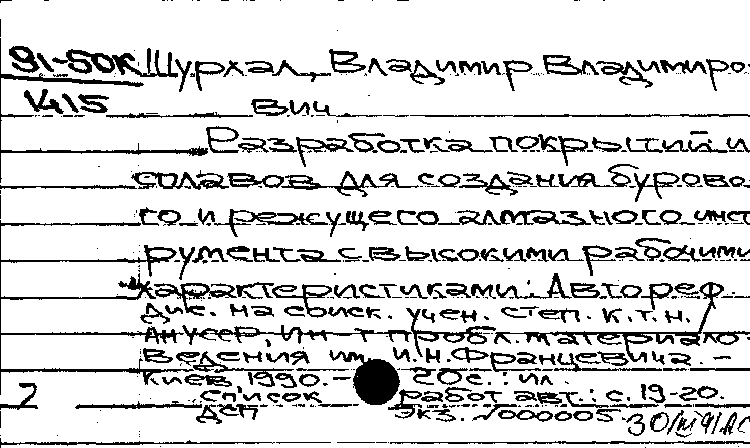 91-50К Шурхал, Владимир Владимиро-
1415 вич
Разработка покрытий и
сплавов для создания бурово-
го и режущего алмазного инст
румента с высокими рабочими
характеристиками: Автореф.
дис. на соиск. учен. степ. к.т.н.
АН УССР, Ин-т пробл. материало-
ведения им. И.Н. Францевича. –
Киев, 1990. – 20с.: ил.
2 список работ авт.: с. 19-20.
ДСП Экз. №000005